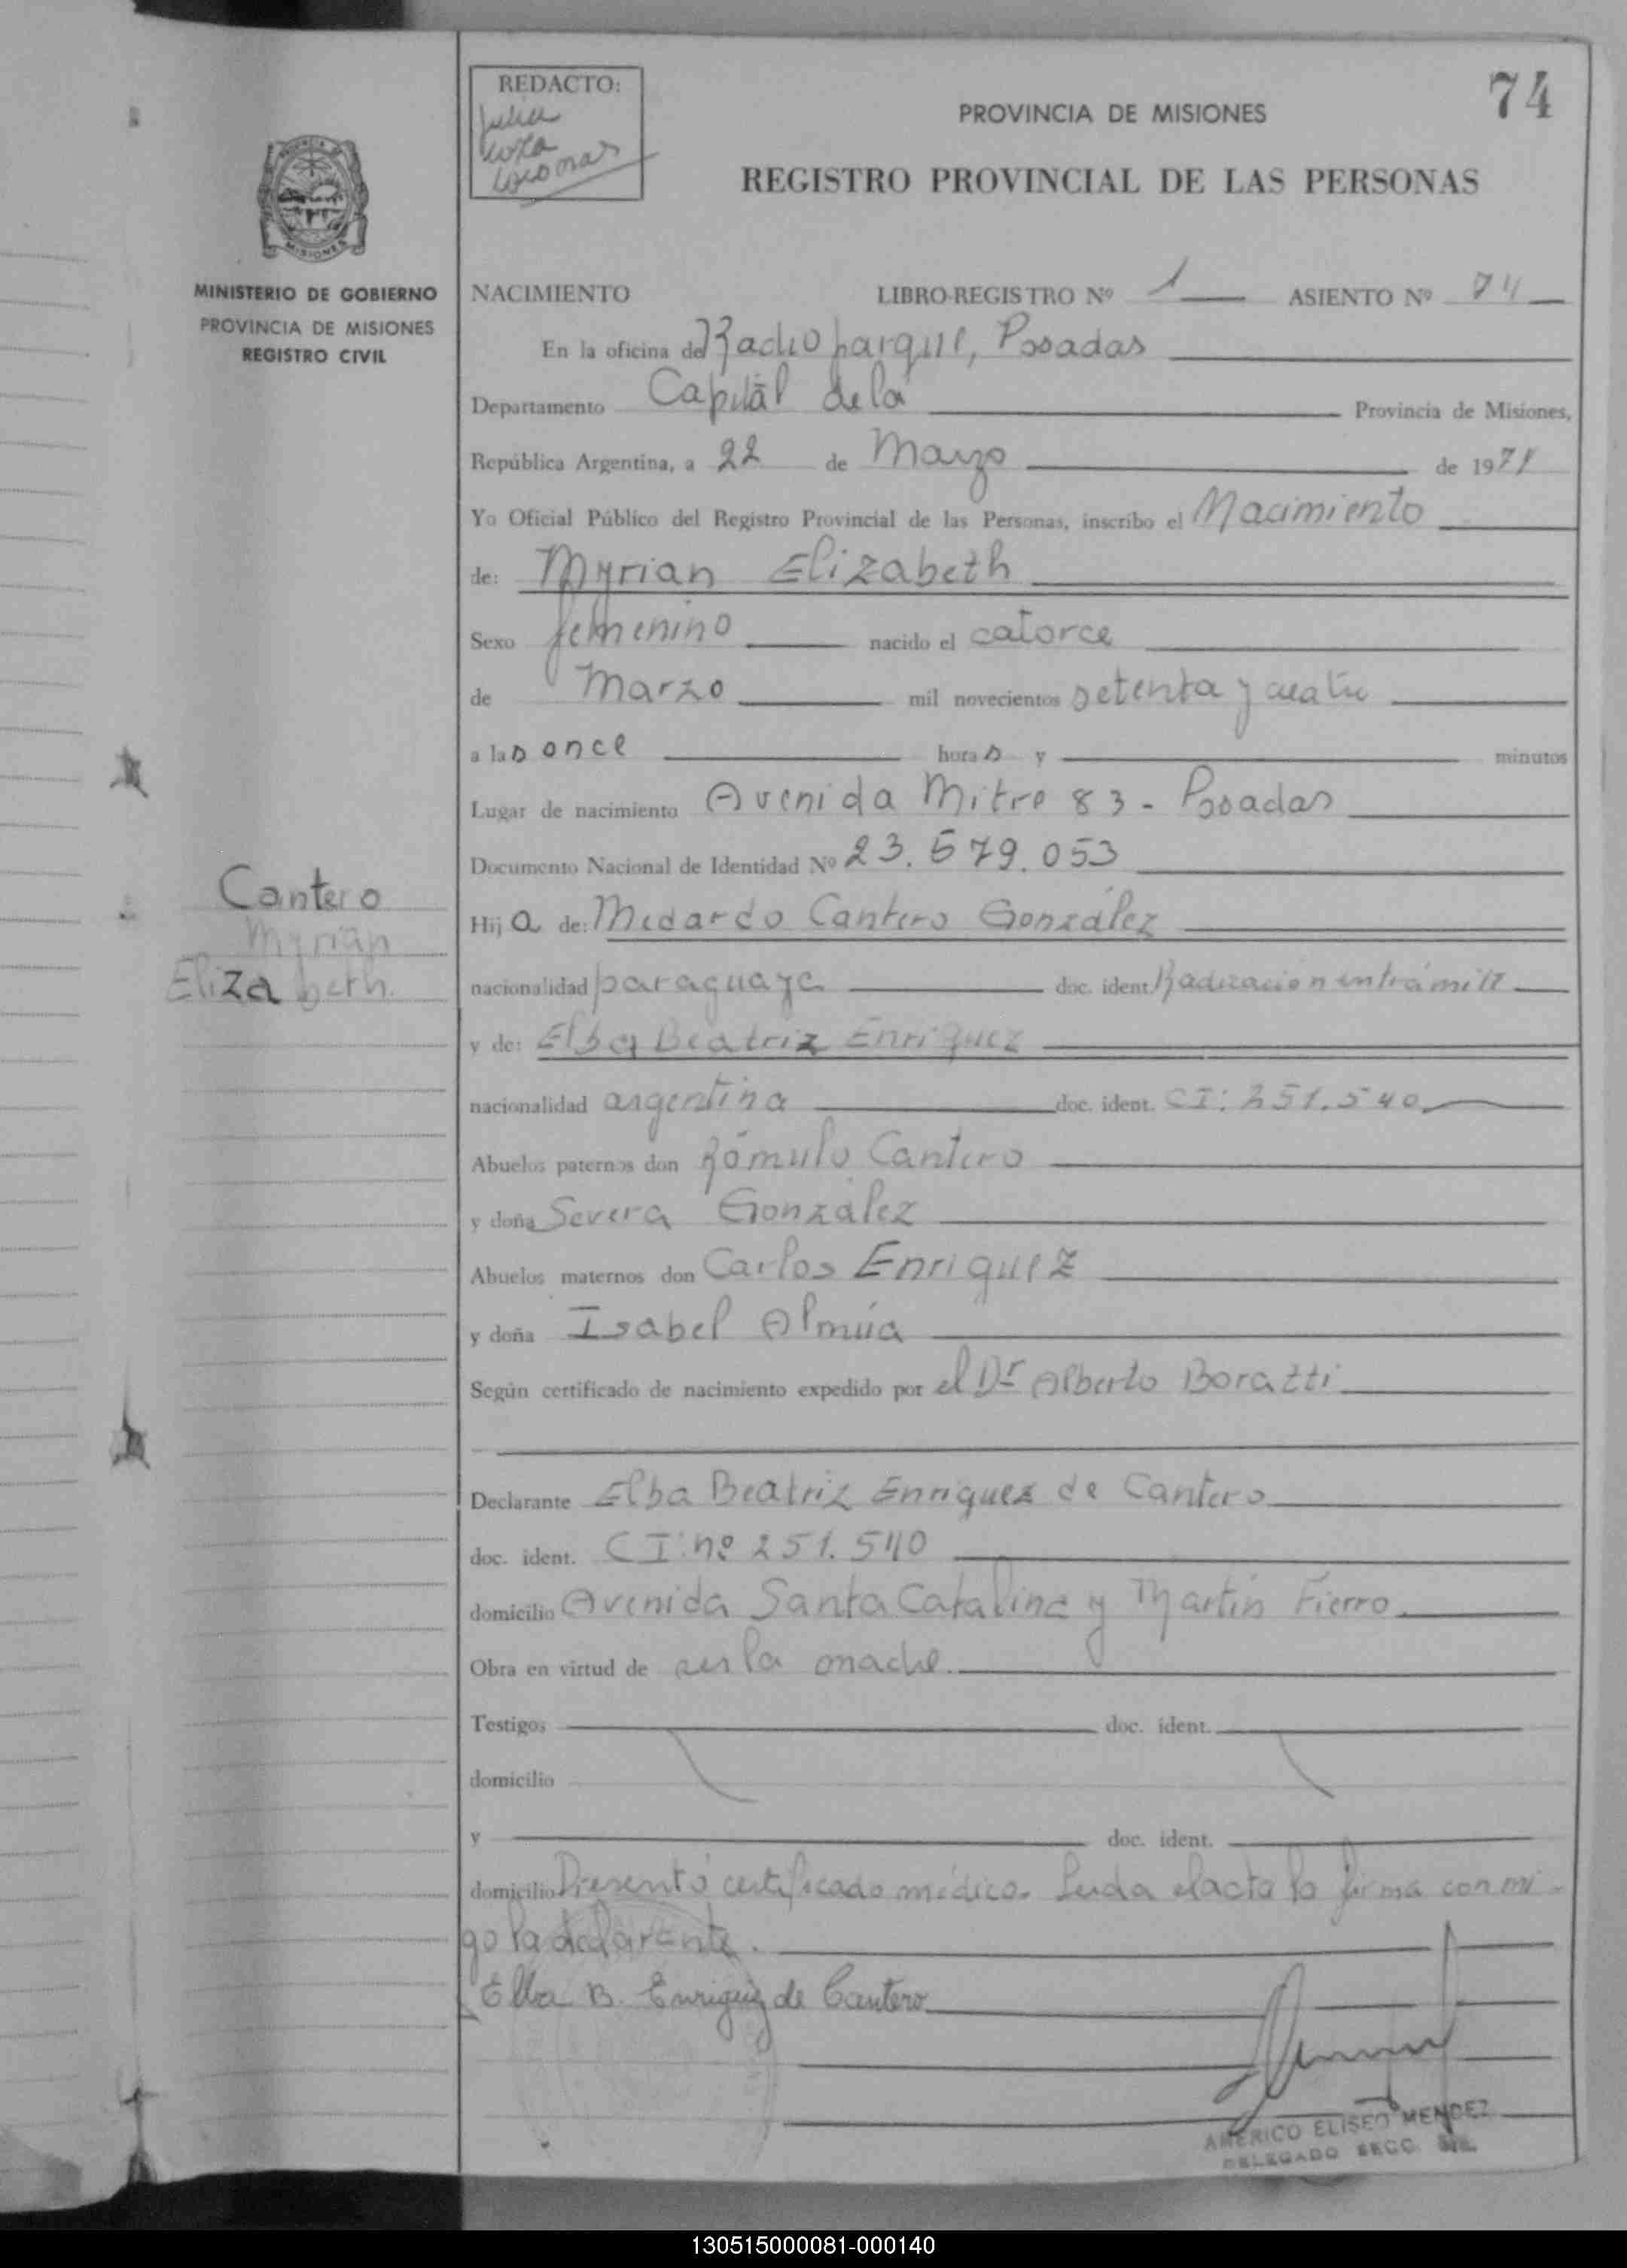 REDACTO:
Julia
74
PROVINCIA DE MISIONES
REGISTRO PROVINCIAL DE LAS PERSONAS
MISIONES
MINISTERIO DE GOBIERNO
PROVINCIA DE MISIONES
REGISTRO CIVIL
NACIMIENTO LIBRO-REGISTRO Nº 1 ASIENTO Nº 74
En la oficina del Radio parque, Posadas
Departamento Capital de la Provincia de Misiones,
República Argentina, a 22 de Marzo de 1974
Yo Oficial Público del Registro Provincial de las Personas, inscribo el Nacimiento
de: Myrian Elizabeth
Sexo femenino nacido el catorce
de Marzo mil novecientos setenta y cuatro
a las once horas y minutos
Lugar de nacimiento Avenida Mitre 83 - Posadas
Documento Nacional de Identidad Nº 23.579.053
Cantero
Myrian
Elizabeth.
Hija de: Medardo Cantero González
nacionalidad paraguaya doc. ident. Radicación en trámite
y de: Elba Beatriz Enriquez
nacionalidad argentina doc. ident. CI: 251.540
Abuelos paternos don Rómulo Cantero
y doña Severa González
Abuelos maternos don Carlos Enriquez
y doña Isabel Almúa
Según certificado de nacimiento expedido por el Dr Alberto Boratti
Declarante Elba Beatriz Enriquez de Cantero
doc. ident. CI: nº 251.540
domicilio Avenida Santa Catalina y Martín Fierro
Obra en virtud de ser la madre.
Testigos doc. ident.
domicilio
y doc. ident.
domicilio Presentó certificado médico. Leída el acta la firma conmi-
go la declarante.
Elba B. Enriquez de Cantero
AMERICO ELISEO MENDEZ
DELEGADO SECC.
130515000081-000140